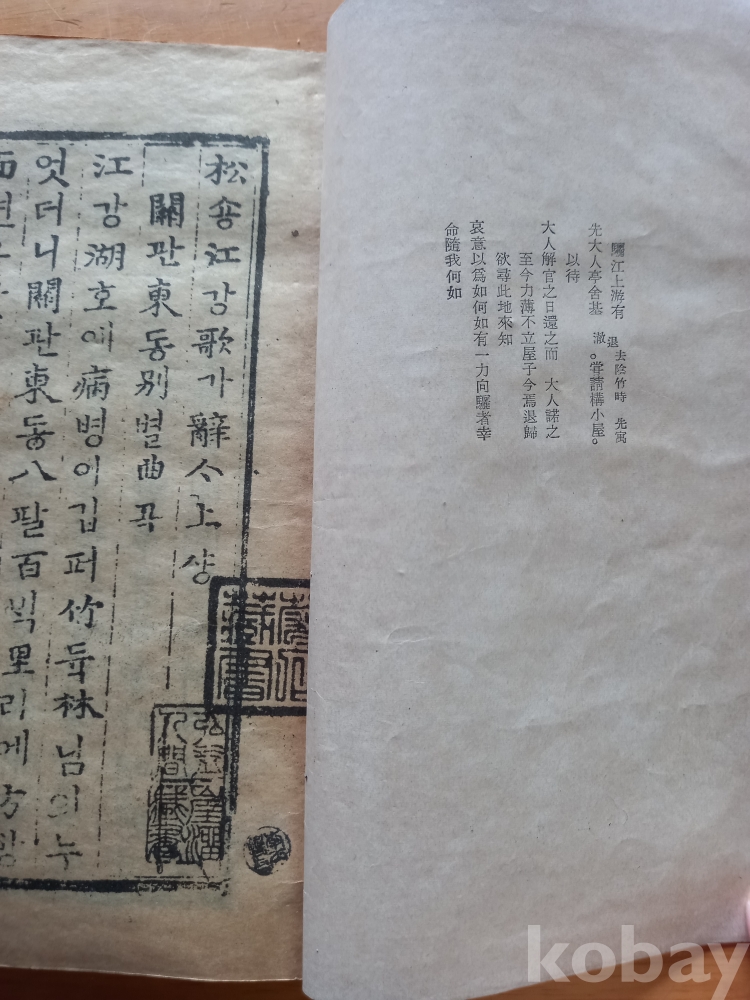 驪江上游有 退去陰竹時 先寓
先大人亭舍基 澈。嘗請構小屋。
以待
大人解官之日還之而 大人諾之
至今力薄不立屋子今焉退歸
欲尋此地來知
哀意以爲如何如有一力向驪者幸
命隨我何如
松숑江강歌가辭ᄉ上샹
關관東동別별曲곡
江강湖호애病병이깁퍼竹듁林님의누
엇더니關관東동八팔百ᄇᆡᆨ里리에方방
面면
藏書
kobay